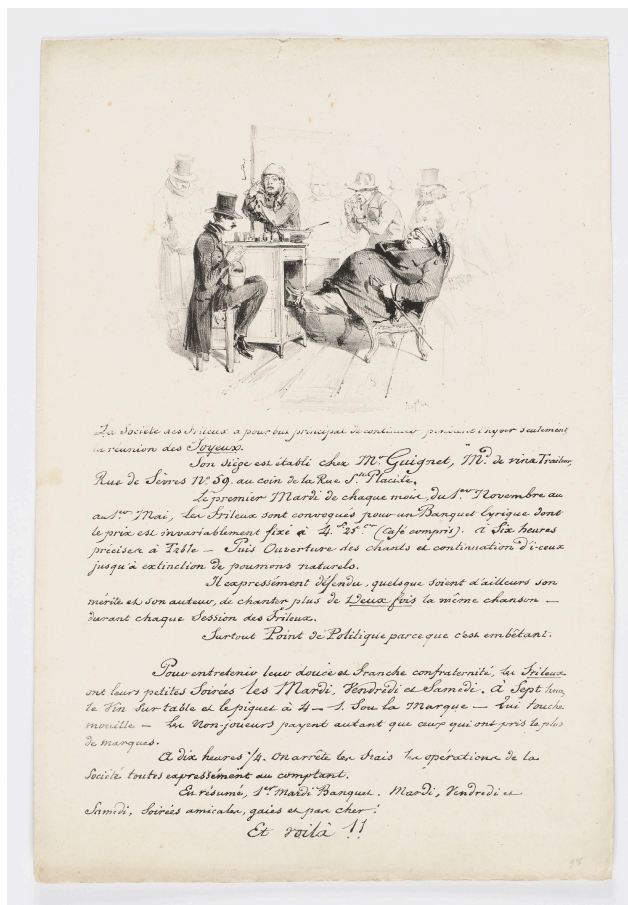 La Société des Frileux a pour but principal de continuer pendant l'hyver seulement
la réunion des Joyeux.
Son siège est établi chez Mr Guignet, Md de vins Traiteur,
Rue de Sèvres No 59. au coin de la Rue Ste Placide.
Le premier Mardi de chaque mois, du 1er Novembre au
au 1er Mai, les Frileux sont convoqués pour un Banquet lyrique dont
le prix est invariablement fixé à 4 fs 25 cs (Café compris). à Six heures
précises à Table — Puis Ouverture des chants et continuation d'i-ceux
jusqu'à extinction de poumons naturels.
Il expressément défendu, quelsque soient d'ailleurs son
mérite et son auteur, de chanter plus de Deux fois la même chanson —
durant chaque Session des Frileux.
Surtout Point de Politique parce que c'est embêtant.
Pour entretenir leur douce et franche confraternité, les Frileux
ont leurs petites Soirées les Mardi, Vendredi et Samedi. À Sept heures
le Vin sur table et le piquet à 4 — 1. Sou la Marque — Qui touche
mouille — Les Non-joueurs payent autant que ceux qui ont pris le plus
de marques.
A dix heures 1/4. on arrête les frais les opérations de la
Société toutes expressément au comptant.
En résumé, 1er Mardi Banquet. Mardi, Vendredi et
Samedi, Soirées amicales, gaies et pas cher!
Et voilà !!